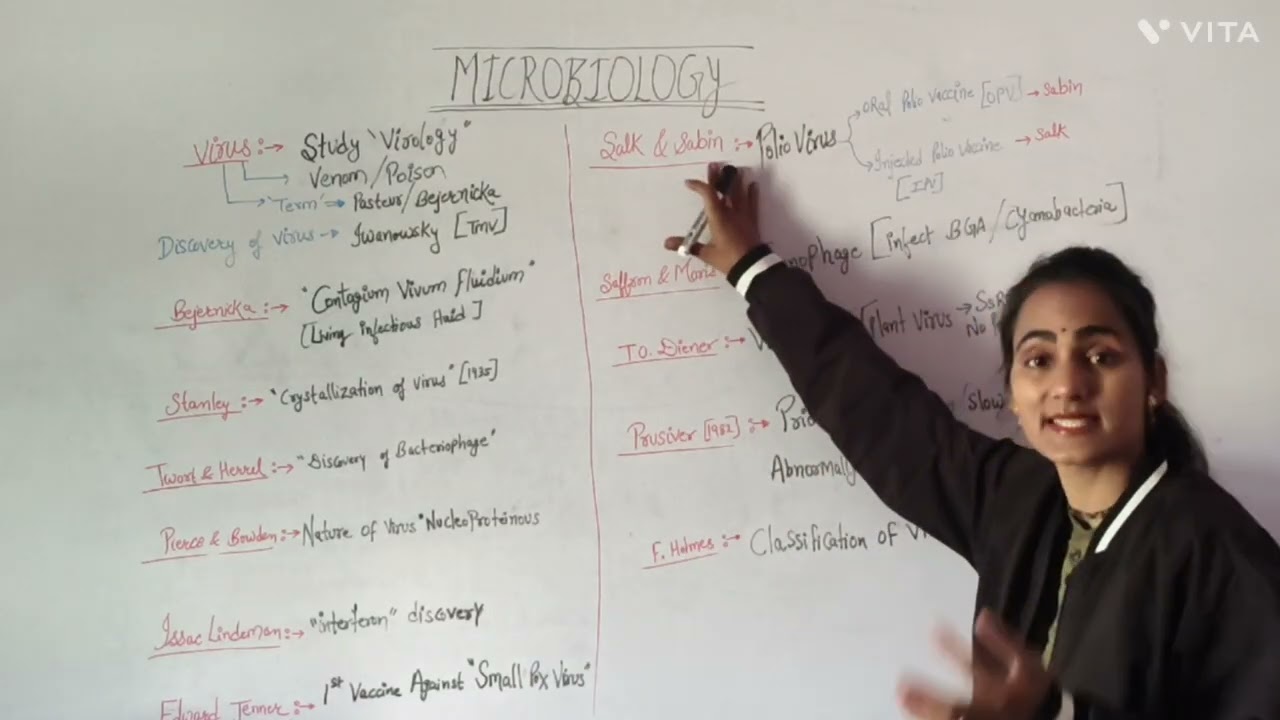 VITA
MICROBIOLOGY
Virus :→ Study "Virology"
Venom/Poison
"Term" → Pasteur/Bejernicka
Discovery of Virus → Iwanowsky [TMV]
Bejernicka :→ "Contagium Vivum fluidium"
[Living infectious fluid]
Stanley :→ "Crystallization of Virus" [1935]
Twort & Herrel :→ "Discovery of Bacteriophage"
Pierce & Bowden :→ Nature of Virus "NucleoProteinous
Issac Lindeman :→ "interferon" discovery
Edward Jenner :→ 1st Vaccine Against "Small Pox Virus"
Salk & Sabin :→ Polio Virus
Oral Polio Vaccine [OPV] → Sabin
Injected Polio Vaccine → Salk
Saffrom & [infect BGA/Cyanobacteria]
T.O. Diener :→ [Plant Virus →
No
Prusiver [1982] :→ (Slow)
Abnormally
F. Holmes :→ Classification of